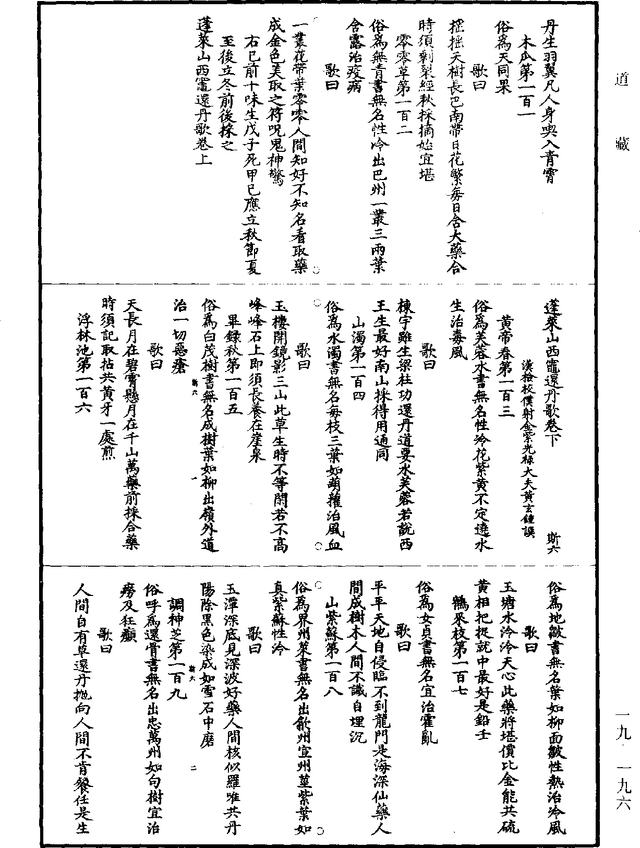 道藏
丹生羽翼凡人身喫入青霄
木瓜第一百一
俗爲天同果
歌曰
摇摇天樹長巴南帶日花繁每日含大藥合
時須剩裂經秋採摘始宜堪
零零草第一百二
俗爲無青書無名性冷出巴州一叢三兩葉
含露治疫病
歌曰
一叢花帶葉零零人間知好不知名看取藥
成金色美取之符呪鬼神驚
右已前十味生戊子死甲巳應立秋節夏
至後立冬前後採之
蓬萊山西竈還丹歌卷上
蓬萊山西竈還丹歌卷下 斯六
漢檢校僕射金紫光祿大夫黃玄鍾譔
黃帝春第一百三
俗爲芙蓉水書無名性冷花紫黃不定遶水
生治毒風
歌曰
棟宇雖生梁柱功還丹道要水芙蓉若說西
王生最好南山採得用通同
山濁第一百四
俗爲水濁書無名每枝三葉如萌蘿治風血
歌曰
玉樓開鏡影三山此草生時不等閑若不高
峰峰石上即須長養在崖泉
畢錄秋第一百五
俗爲白茂樹書無名成樹葉如柳出嶺外道
斯六 一
治一切惡瘡
歌曰
天長月在碧霄懸月在千山萬藥前採合藥
時須記取拈共黃牙一處煎
浮林池第一百六
俗爲地皺書無名葉如柳面皺性熱治冷風
歌曰
玉塘水泠泠天心此藥將堪價比金能共硫
黃相把捉就中最好是鉛壬
鵶果枝第一百七
俗爲女貞書無名宜治霍亂
歌曰
平平天地自侵臨不到龍門是海深仙藥人
間成樹木人間不識自埋沉
山紫蘇第一百八
俗爲界州菜書無名出歙州宣州莖紫葉如
真紫蘇性冷
歌曰
玉潭深底見深波好藥人間核似羅唯共丹
陽除黑色染成如雪石中磨
斯六 二
調神芝第一百九
俗呼爲還骨書無名出忠萬州如句樹宜治
癆及狂癲
歌曰
人間自有草還丹拋向人間不肯餐任是生
一九·一九六